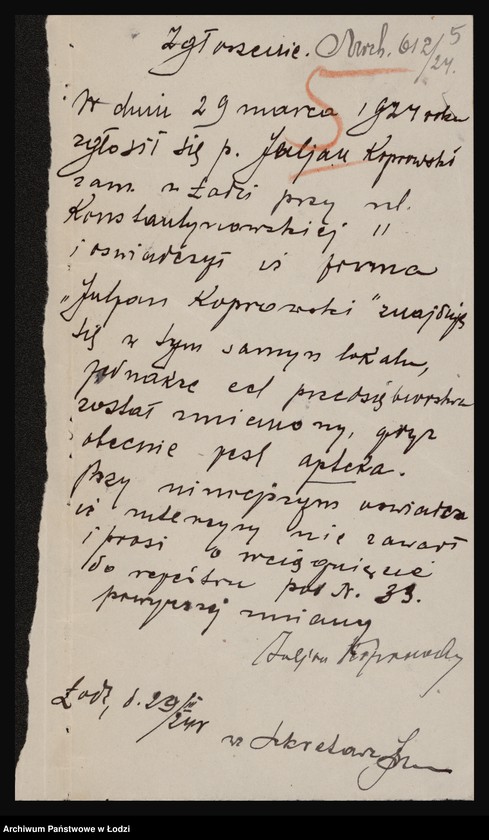 Zgłoszenie. Nrrh. 612/24. 5
W dniu 29 marca 1924 roku
zgłosił się p. Juljan Koprowski
zam. w Łodzi przy ul.
Konstantynowskiej 11
i oświadczył iż firma
„Juljan Koprowski" znajduje
się w tym samym lokalu,
jednakże cel przedsiębiorstwa
został zmieniony, gdyż
obecnie jest apteka.
Przy niniejszym oświadcza
iż intercyzy nie zawarł
i prosi o wciągnięcie
do rejestru pod N. 33.
powyższej zmiany
Juljan Koprowski
Łódź, d. 29/III 24 r
w z Sekretarz
Archiwum Państwowe w Łodzi